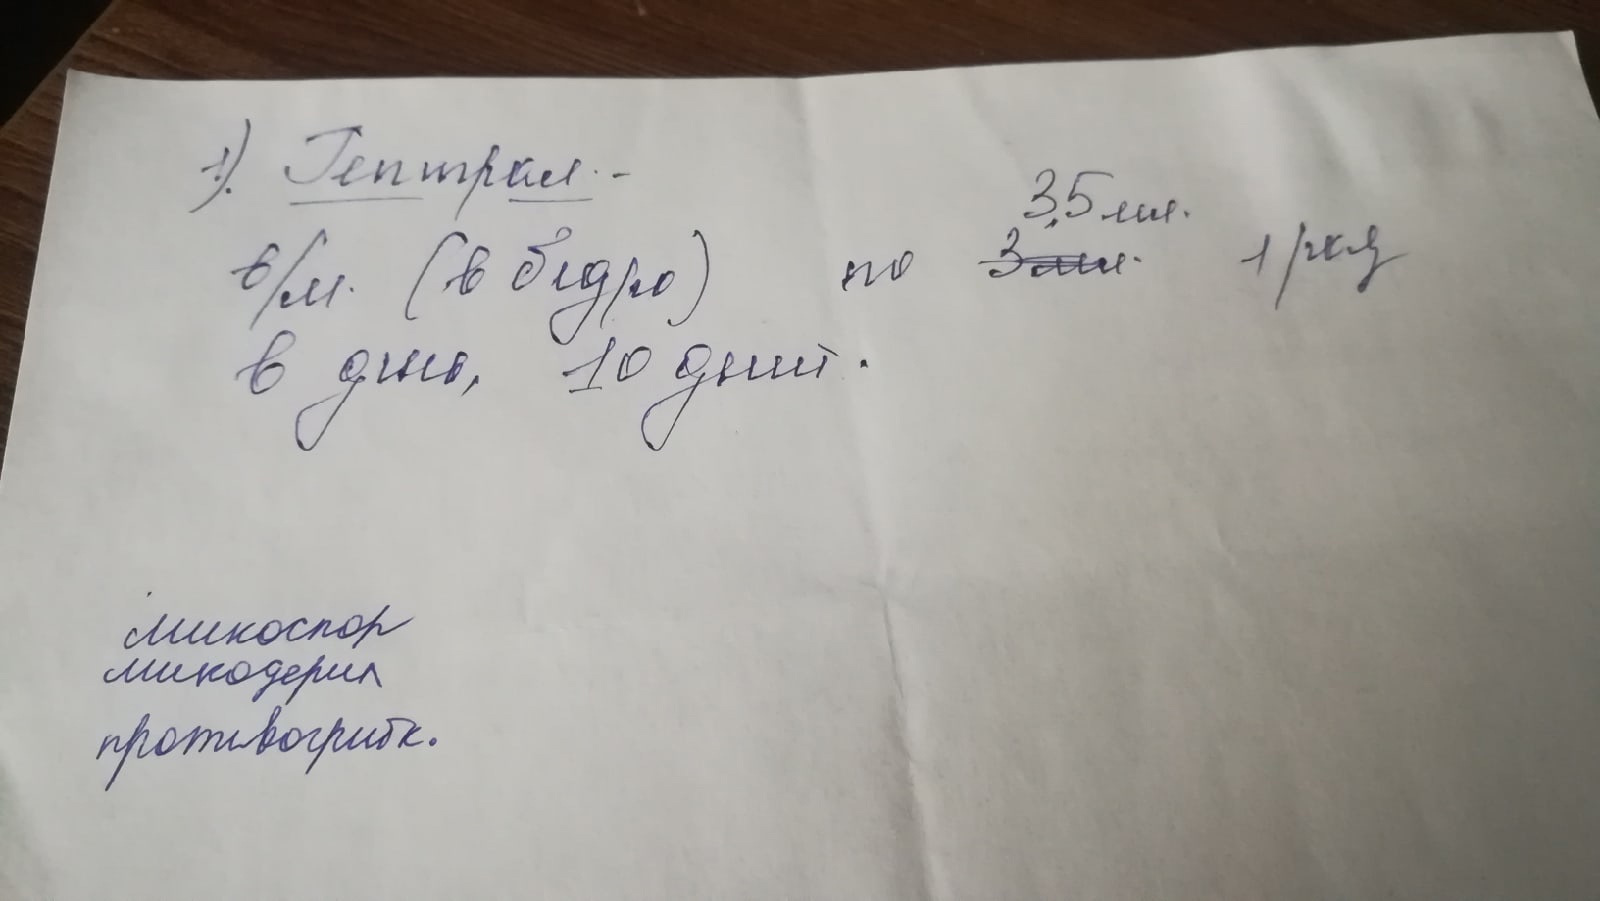 1). Гептрал.-
3,5 мл.
в/м. (в бедро) по 3 мл. 1 раз
в день, 10 дней.
микоспор
микодерил
противогрибк.